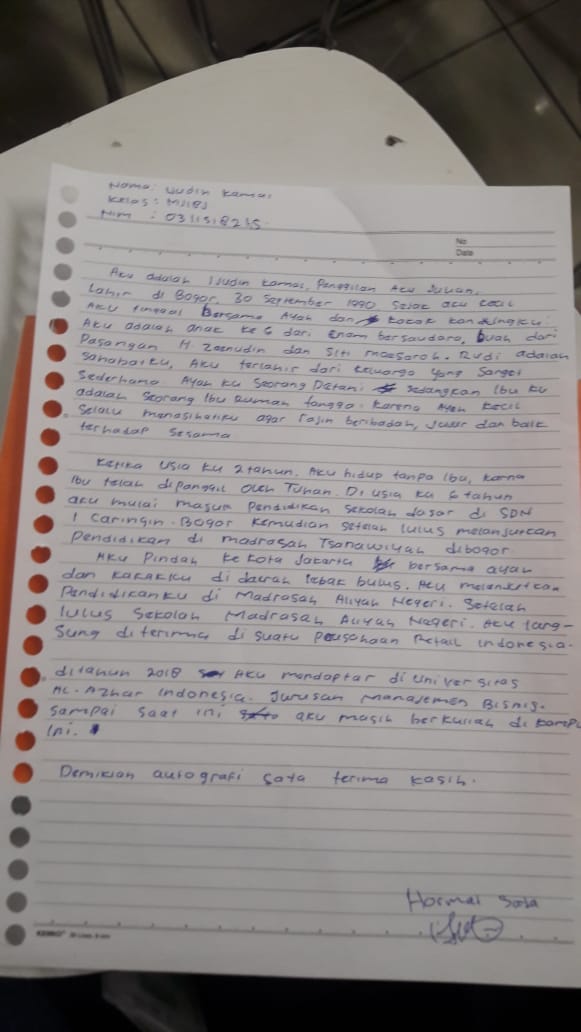 Nama: Judin Kamal
Kelas: MJ1B5
Nim : 031518215
No
Date
Aku adalah Judin Kamal, Panggilan Aku
Lahir di Bogor, 30 September 1990 Sejak aku kecil
Aku tinggal Bersama Ayah dan kakak kandungku
Aku adalah anak ke 6 dari Enam bersaudara, buah dari
Pasangan H Zaenudin dan Siti Maesaroh. Rudi adalah
Sahabatku, Aku terlahir dari keluarga yang Sangat
Sederhana Ayah ku Seorang Petani sedangkan Ibu ku
adalah Seorang Ibu Rumah tangga. Karena Ayah kecil
Selalu menasihatiku agar rajin beribadah, Jujur dan baik
terhadap Sesama
Ketika Usia ku 2 tahun, Aku hidup tanpa Ibu, karna
Ibu telah dipanggil oleh Tuhan. Di usia ku 6 tahun
aku mulai masuk Pendidikan Sekolah dasar di SDN
1 Caringin. Bogor Kemudian Setelah lulus melanjutkan
Pendidikan di madrasah Tsanawiyah dibogor
Aku Pindah ke kota Jakarta bersama ayah
dan kakakku di daerah lebak bulus. Aku melanjutkan
Pendidikanku di Madrasah Aliyah Negeri. Setelah
lulus Sekolah Madrasah Aliyah Nageri. Aku lang-
Sung diterima di suatu Perusahaan Retail Indonesia.
ditahun 2018 Aku mandaptar di Universitas
AL-Azhar Indonesia. Jurusan Manajemen Bisnis.
Sampai saat ini aku masih berkuliah di kampu
Ini.
Demikian autografi saya terima kasih.
Hormat Saya